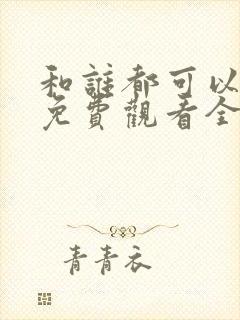 和誰都可以
免費觀看全
青青衣